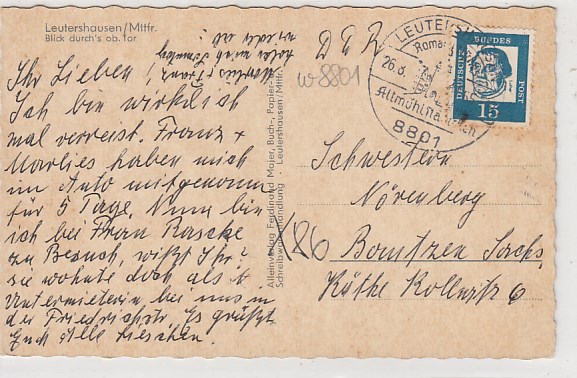 Leutershausen/Mttfr.
Blick durch's ob. Tor
Ihr Lieben!
Ich bin wirklich
mal verreist. Franz +
Marlies haben mich
im Auto mitgenomm
für 5 Tage. Nun bin
ich bei Frau Rascke
zu Besuch, wißt Ihr?
sie wohnte doch als
Untermieterin bei uns in
der Friedrichstr. Es grüßt
Euch alle Lieschen.
Marlies + Franz
wieder ab.
Alleinverlag Ferdinand Majer, Buch-, Papier-
Schreibwarenhandlung · Leutershausen/Mttfr.
DDR
w8801
LEUTERS
26.8.
8801
DEUTSCHE BUNDESPOST
15
Schwestern
Nörenberg
86
Bautzen Sachs.
Käthe Kollwitz 6